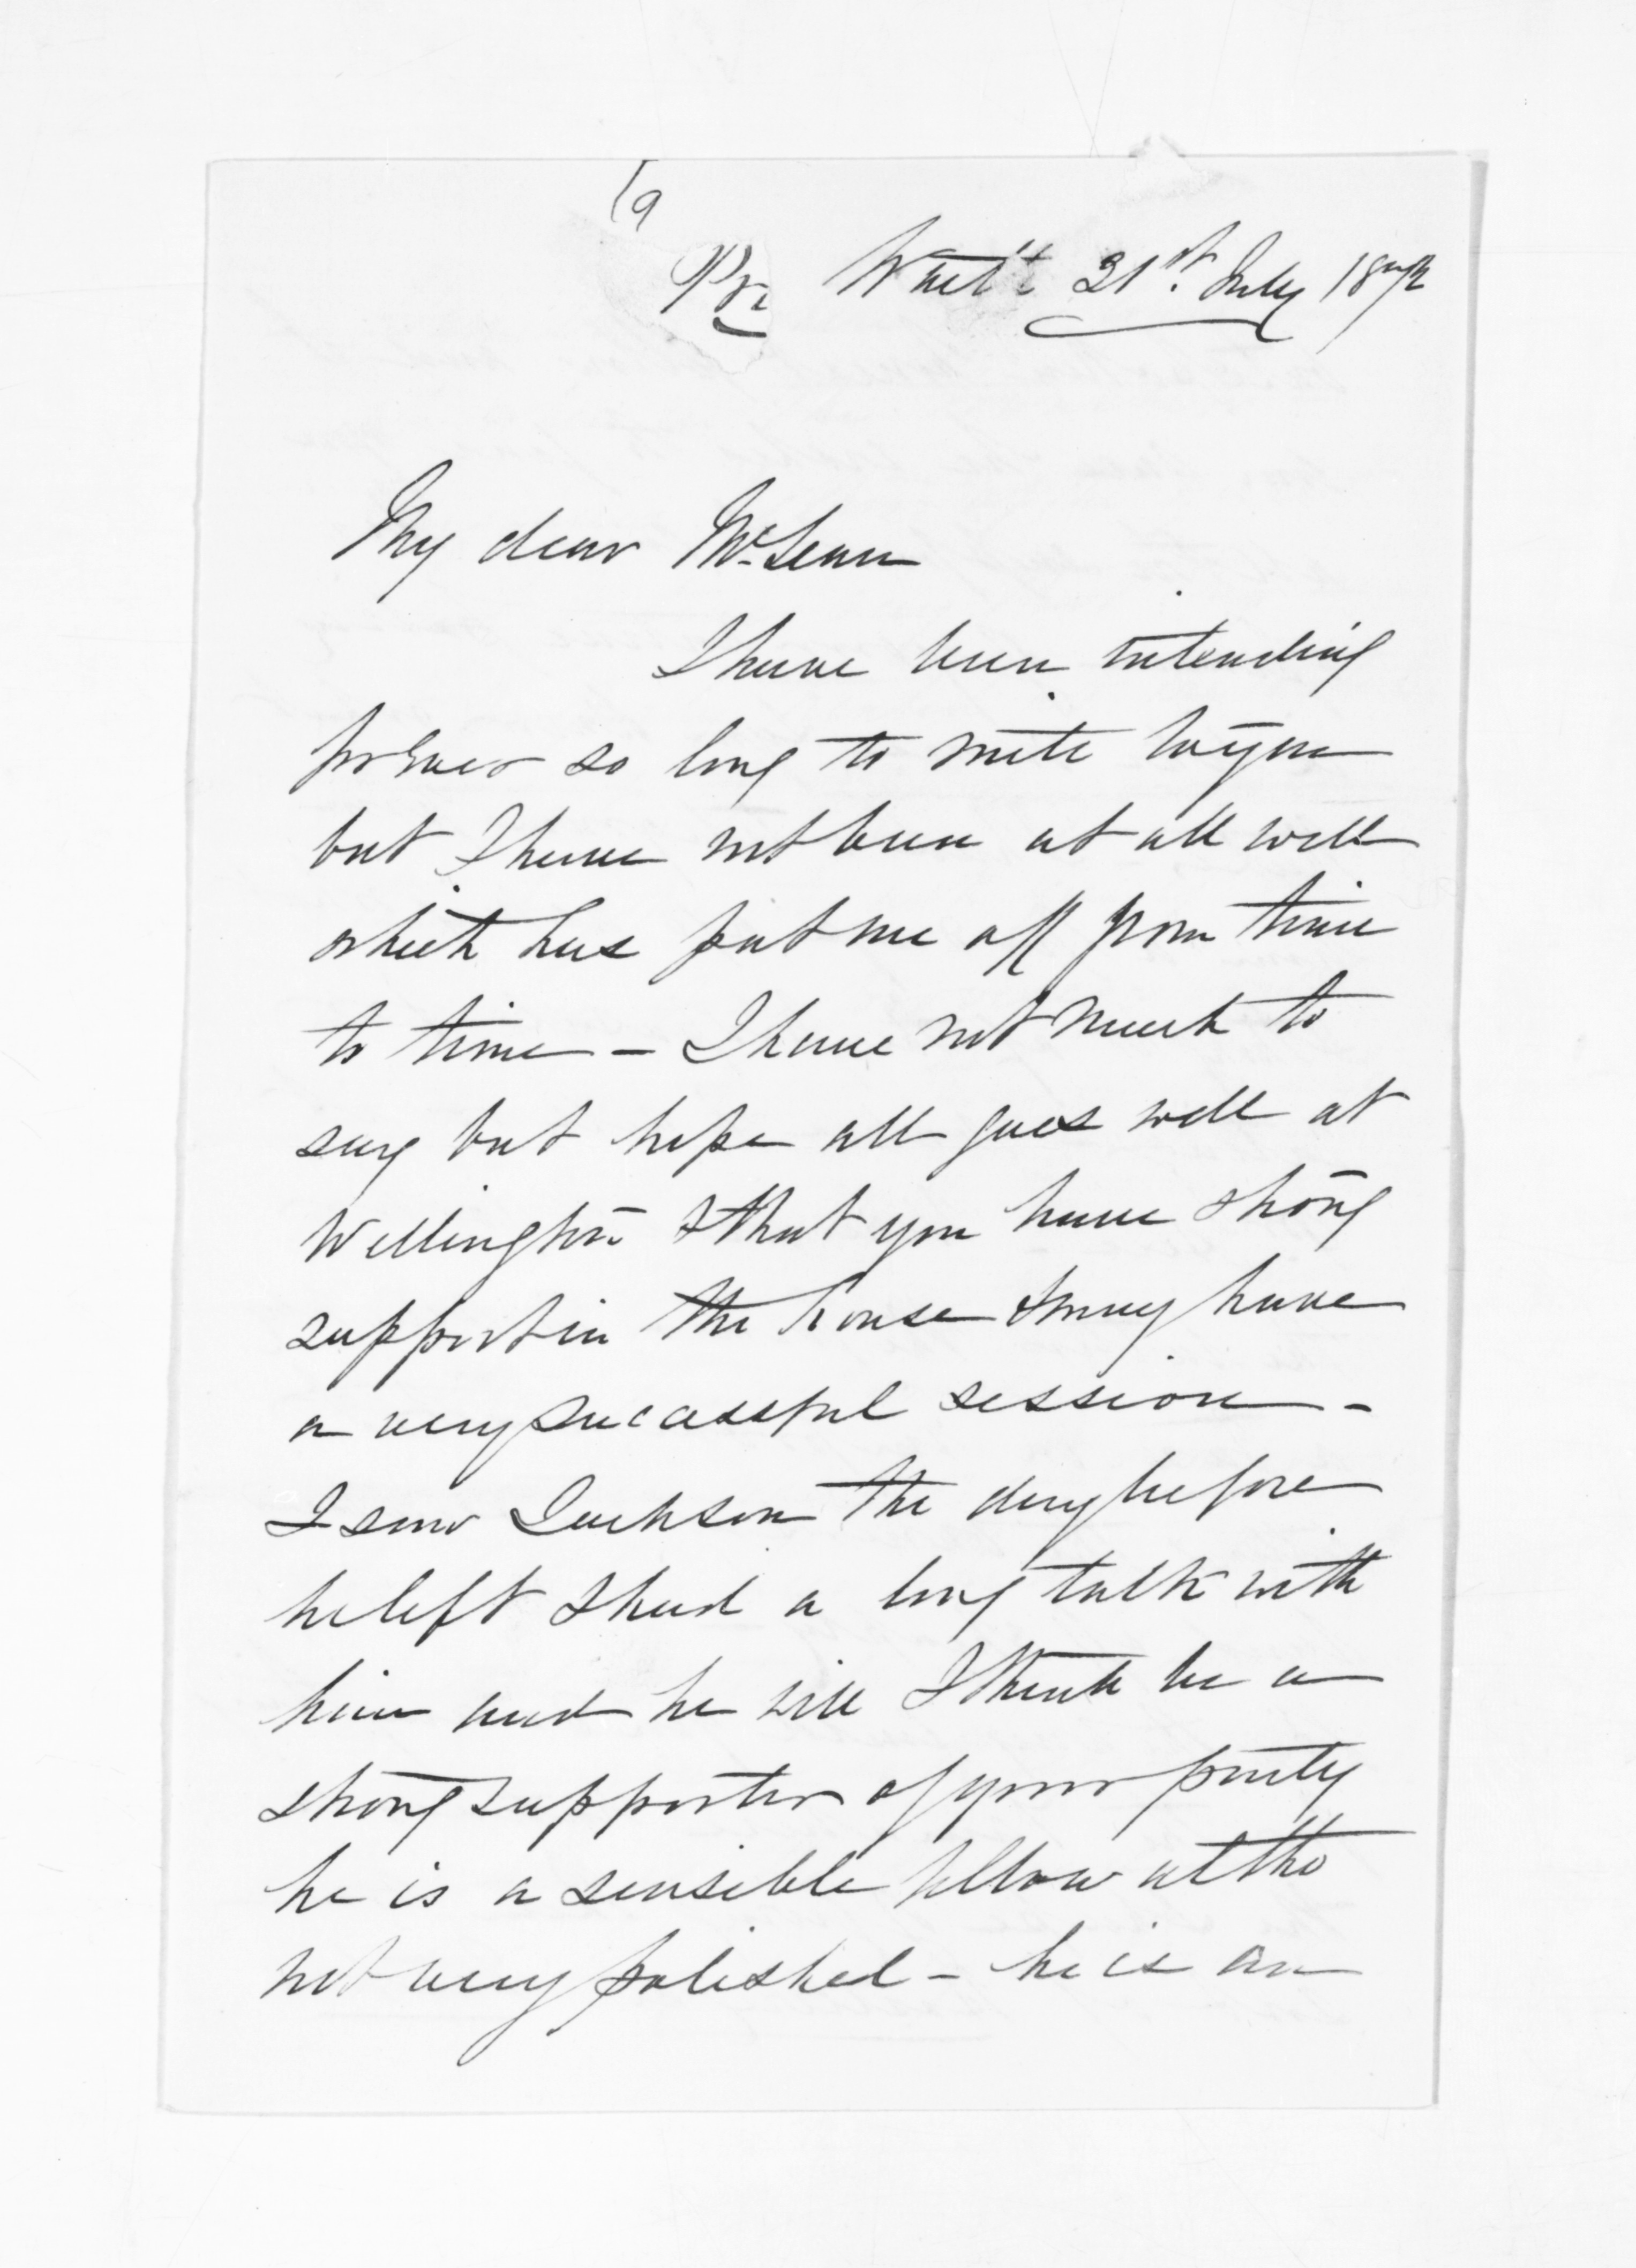 19
Pve 31st July 1872
My dear McLean
I have been intending
for ever so long to write to you
but I have not been at all well
which has put me off from time
to time - I have not much to
say but hope all goes well at
Wellington & that you have strong
support in the house & may have
a very successful session -
I saw Jackson the day before
he left & had a long talk with
him and he will I think be a
strong supporter of your party
he is a sensible fellow altho
not very polished - he is an